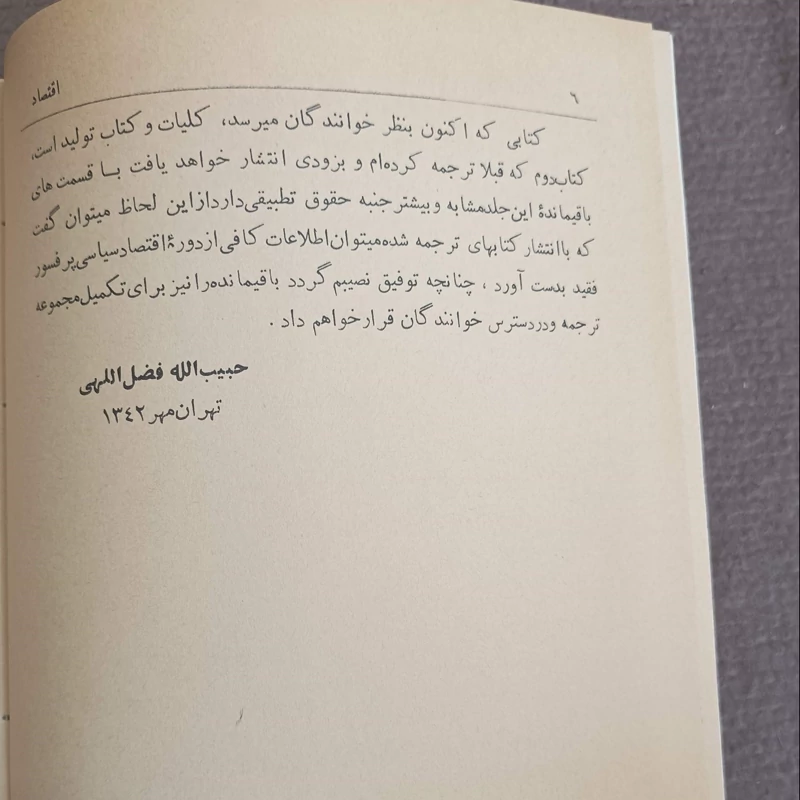 ٦ اقتصاد
کتابی که اکنون بنظر خوانندگان میرسد، کلیات و کتاب تولید است،
کتاب‌دوم که قبلا ترجمه کرده‌ام و بزودی انتشار خواهد یافت با قسمت های
باقیماندهٔ این‌جلد‌مشابه و بیشتر جنبه حقوق تطبیقی‌دارد از این لحاظ میتوان گفت
که با انتشار کتابهای ترجمه شده میتوان اطلاعات کافی از دورهٔ اقتصاد سیاسی پرفسور
فقید بدست آورد ، چنانچه توفیق نصیبم گردد باقیمانده را نیز برای تکمیل مجموعه
ترجمه ودردسترس خوانندگان قرار خواهم داد .
حبیب‌الله فضل‌اللهی
تهران مهر ۱۳٤۲